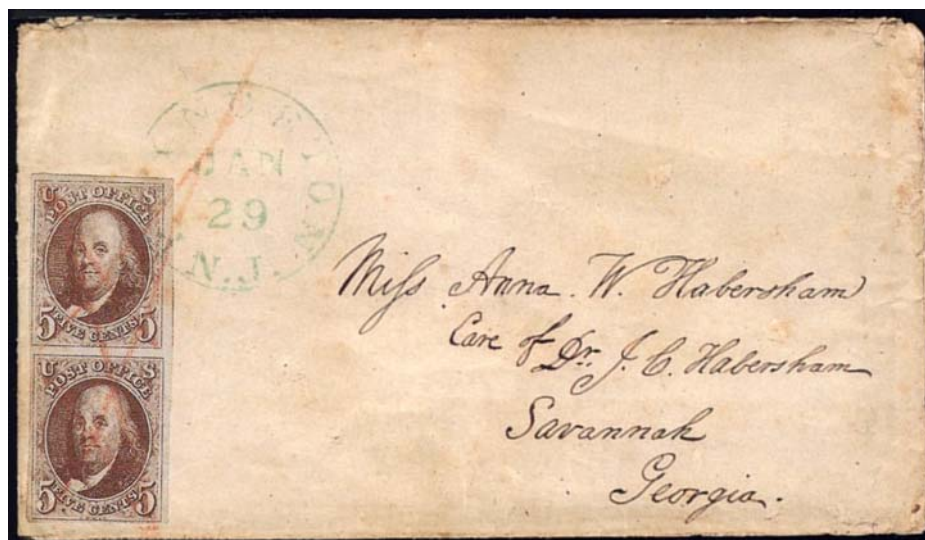 JAN
29
N.J.
U S
POST OFFICE
5 FIVE CENTS 5
U S
POST OFFICE
5 FIVE CENTS 5
Miss Anna. W. Habersham
Care of Dr. J. C. Habersham
Savannah
Georgia.